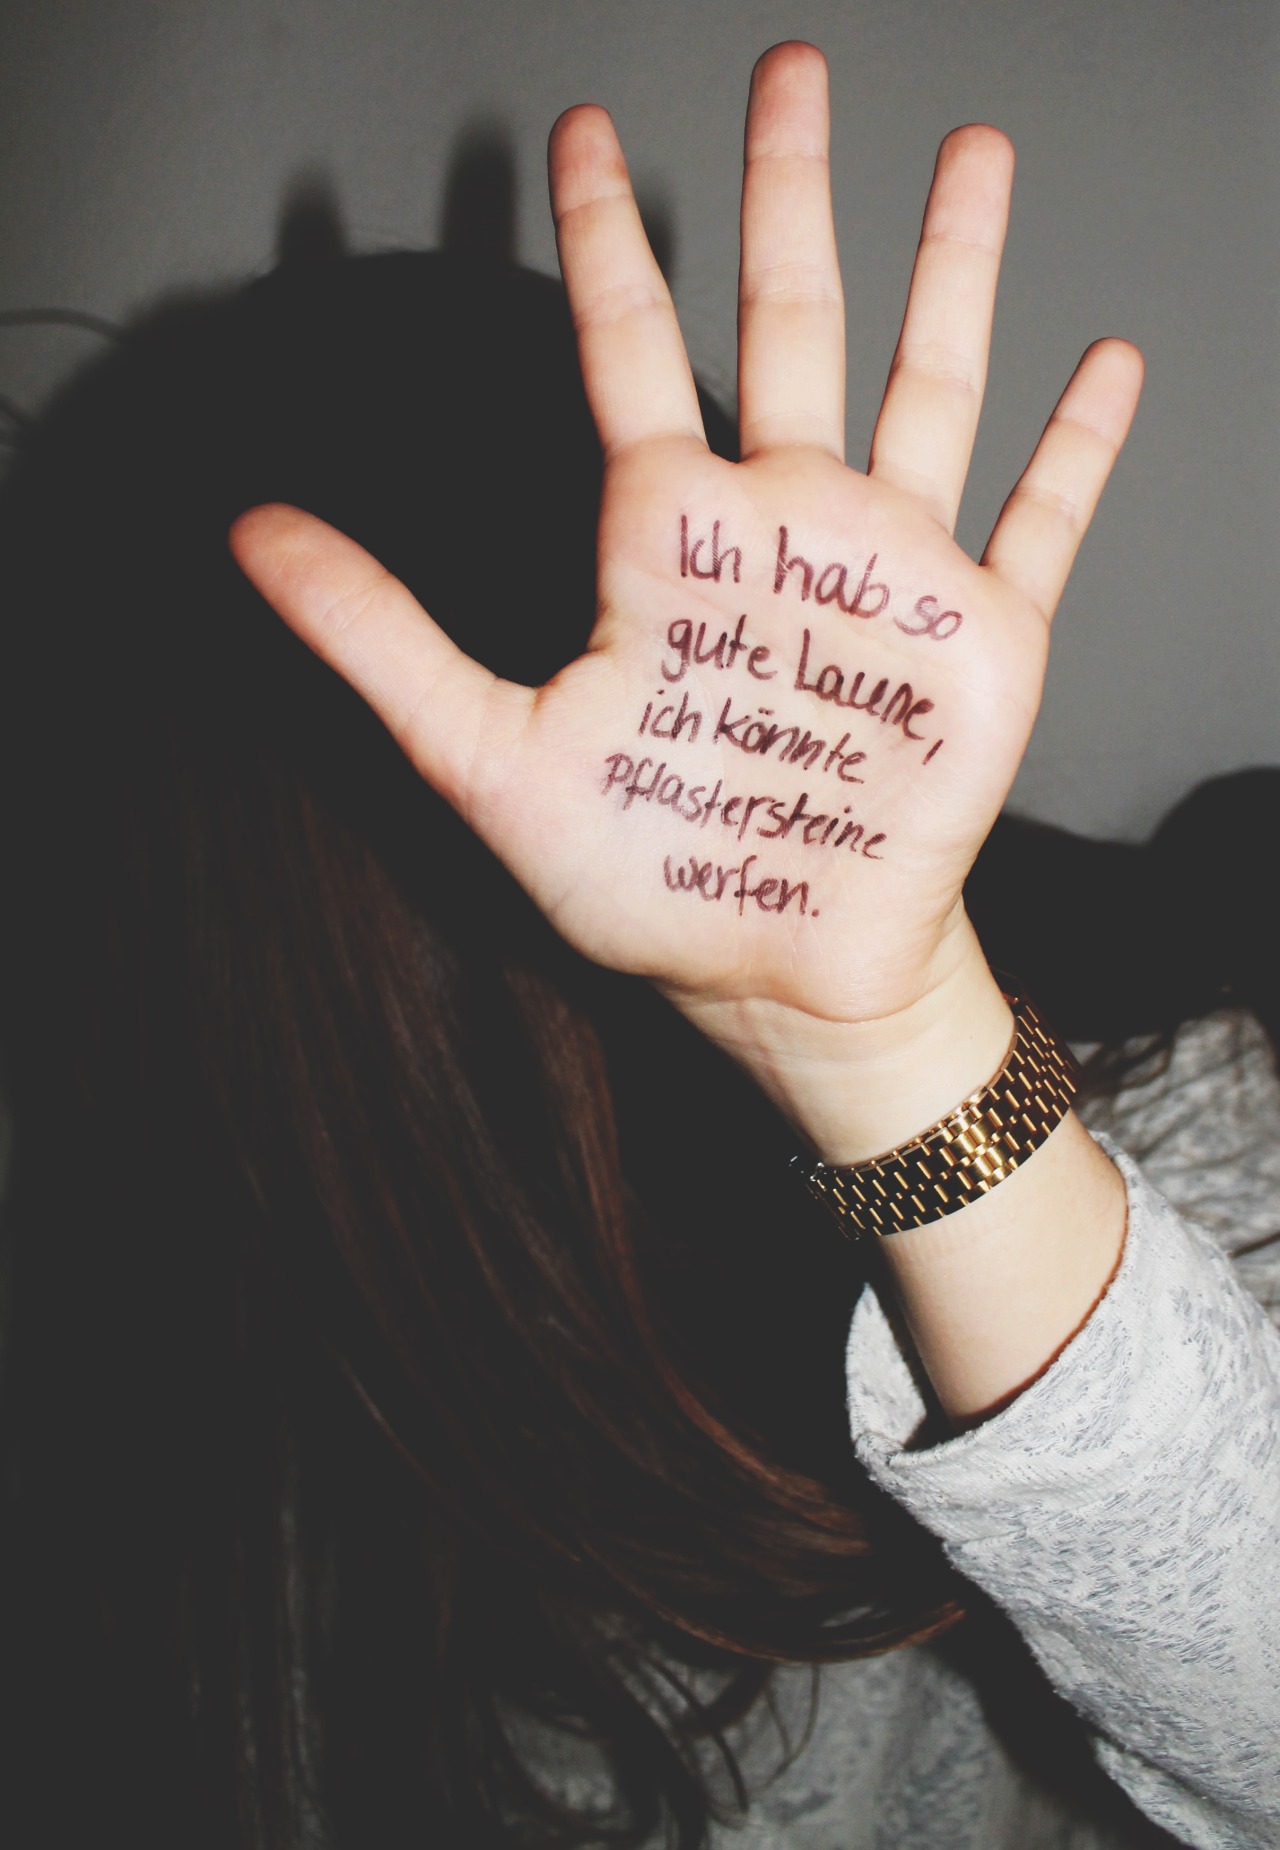 Ich hab so
gute Laune,
ich könnte
Pflastersteine
werfen.